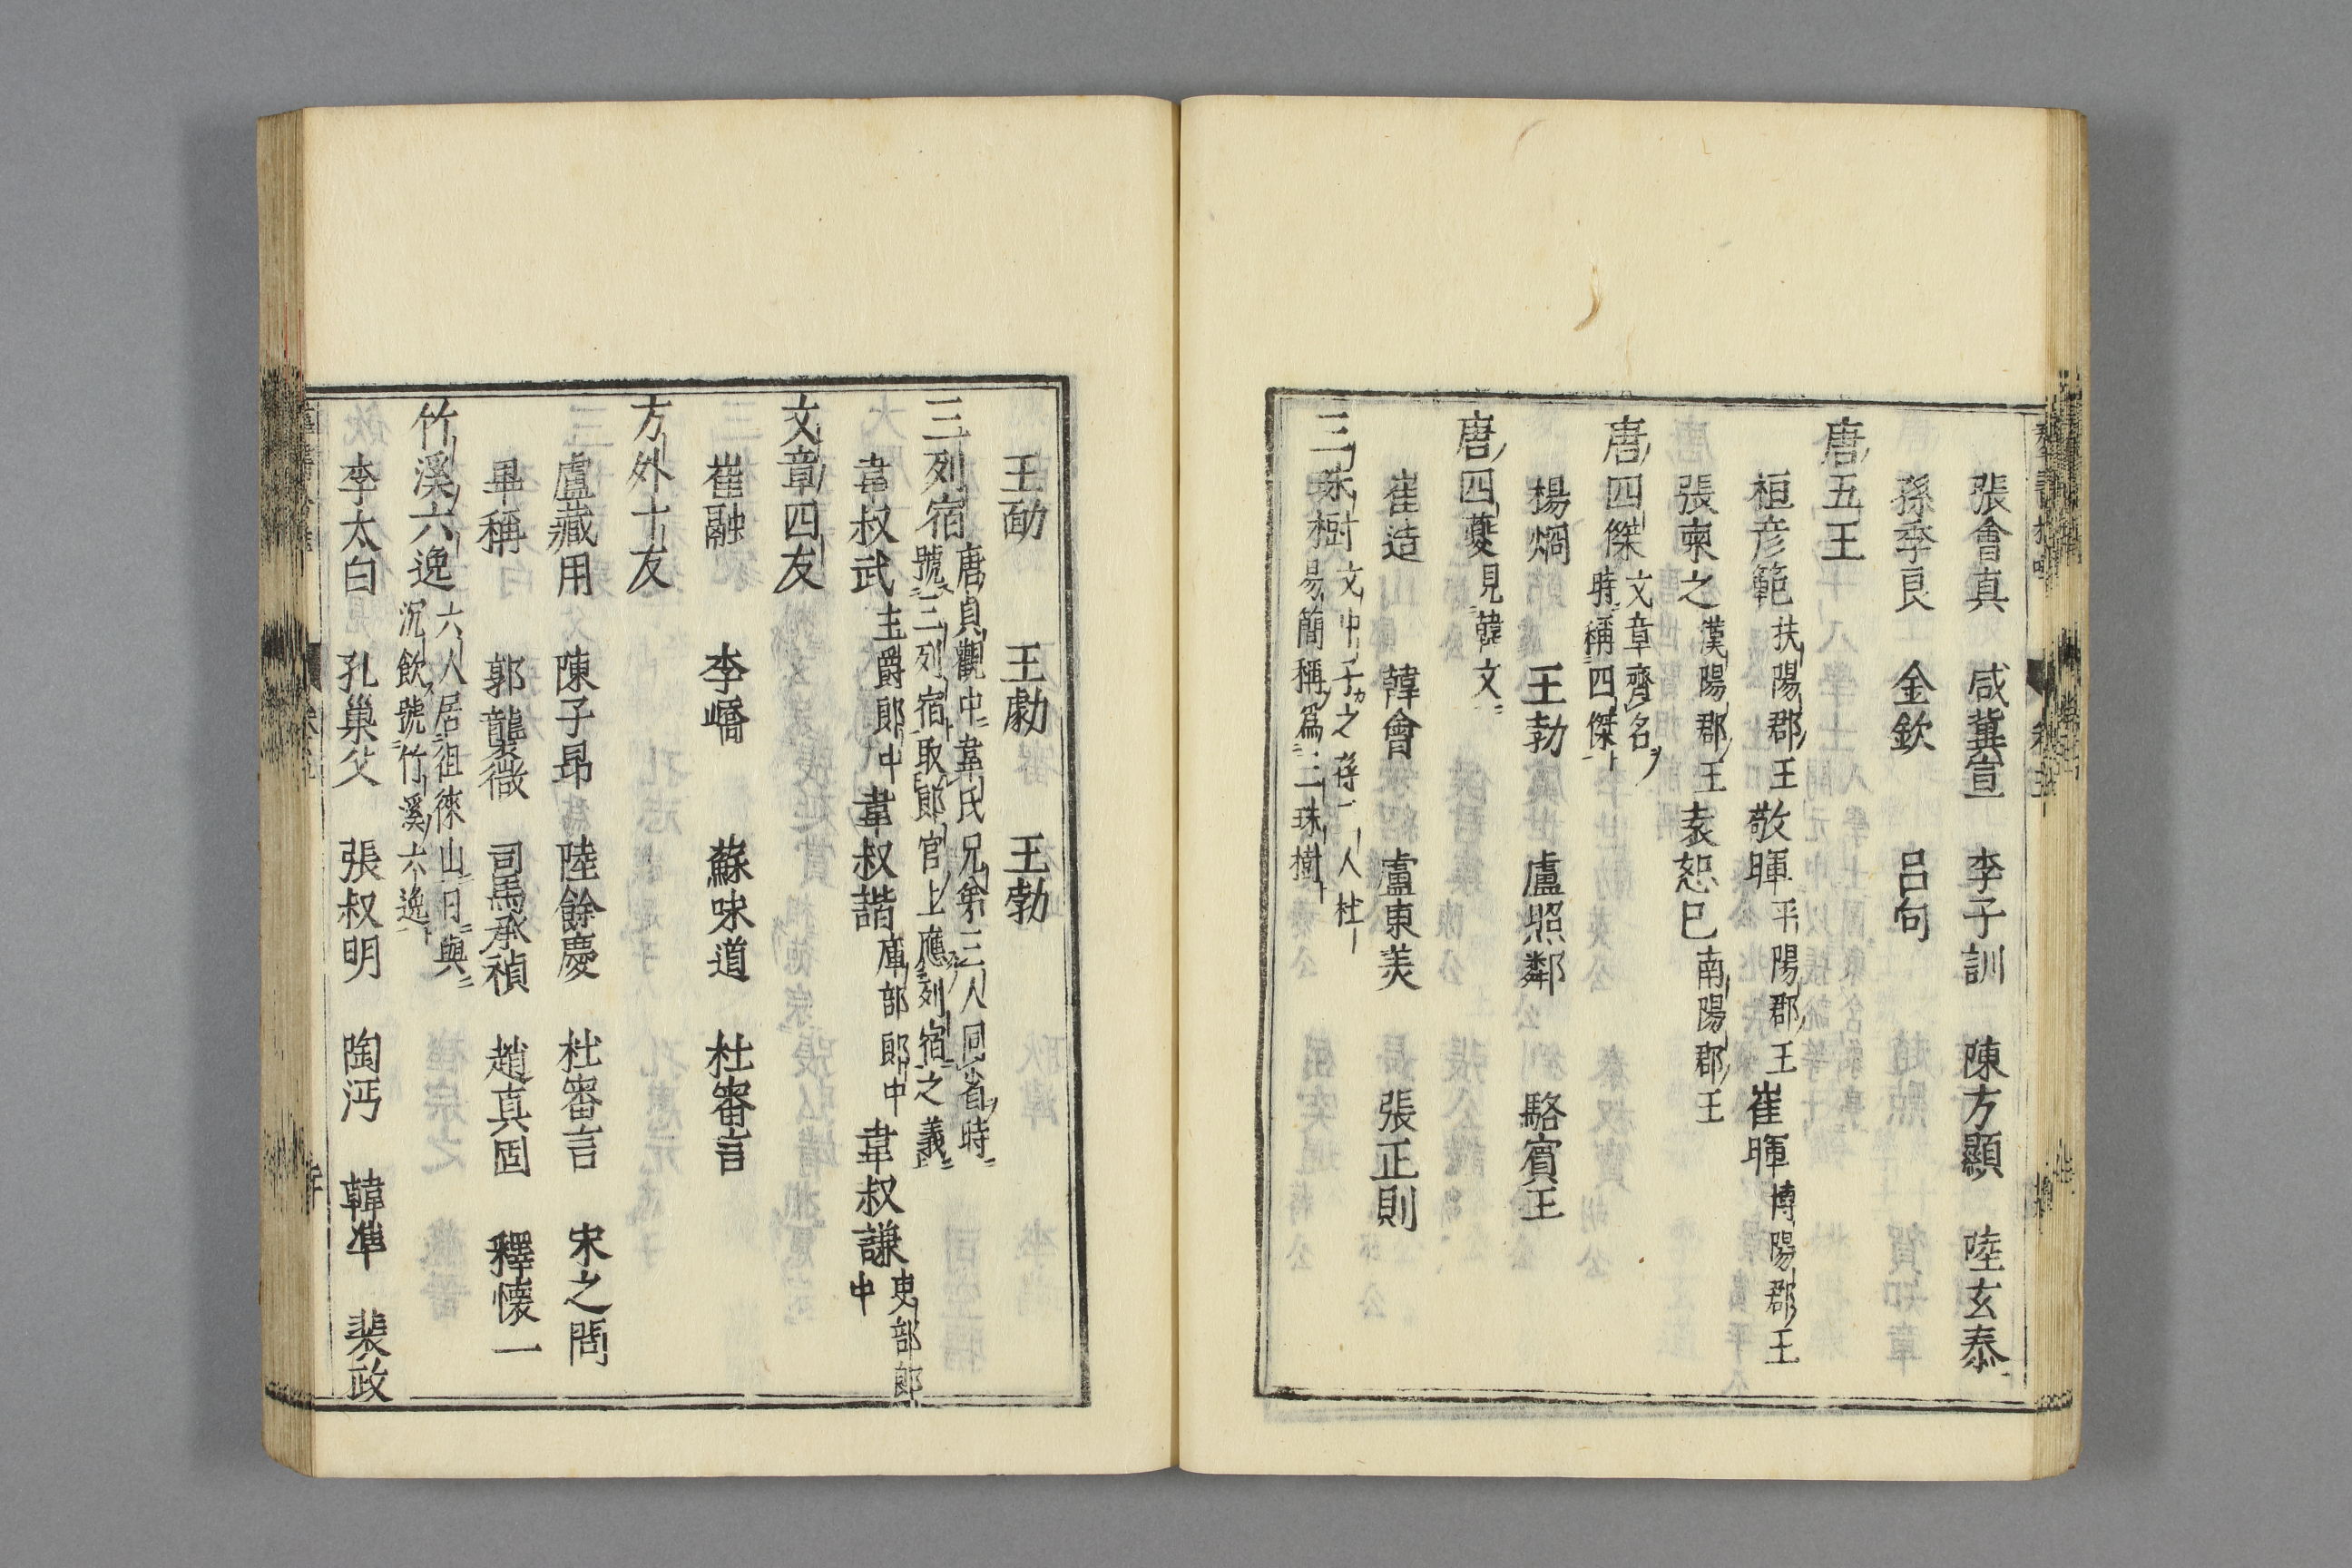 張會真 咸冀宣 李子訓 陳方顯 陸玄泰
孫季良 金欽 呂向 
唐五王
桓彦範 扶陽郡王 敬暉 平陽郡王 崔暉 博陽郡王
張柬之 漢陽郡王 袁恕已 南陽郡王
唐四傑 文章齊名
時稱四傑
楊炯 王勃 盧照鄰 駱賓王
唐四夔 見韓文
崔造 韓會 盧東美 張正則
三珠樹 文中子之孫一人杜
易簡稱爲三珠樹
王勔 王勮 王勃
三列宿 唐貞觀中韋氏兄弟三人同省時
號三列宿取郎官上應列宿之義
韋叔武 主爵郎中 韋叔諧 庫部郎中 韋叔謙 吏部郎
中
文章四友
崔融 李嶠 蘇味道 杜審言
方外十友
盧藏用 陳子昂 陸餘慶 杜審言 宋之問
畢稱 郭襲微 司馬承禎 趙真固 釋懷一
竹溪六逸 六人居徂徠山日與
沉飲號竹溪六逸
李太白 孔巢父 張叔明 陶沔 韓準 裴政